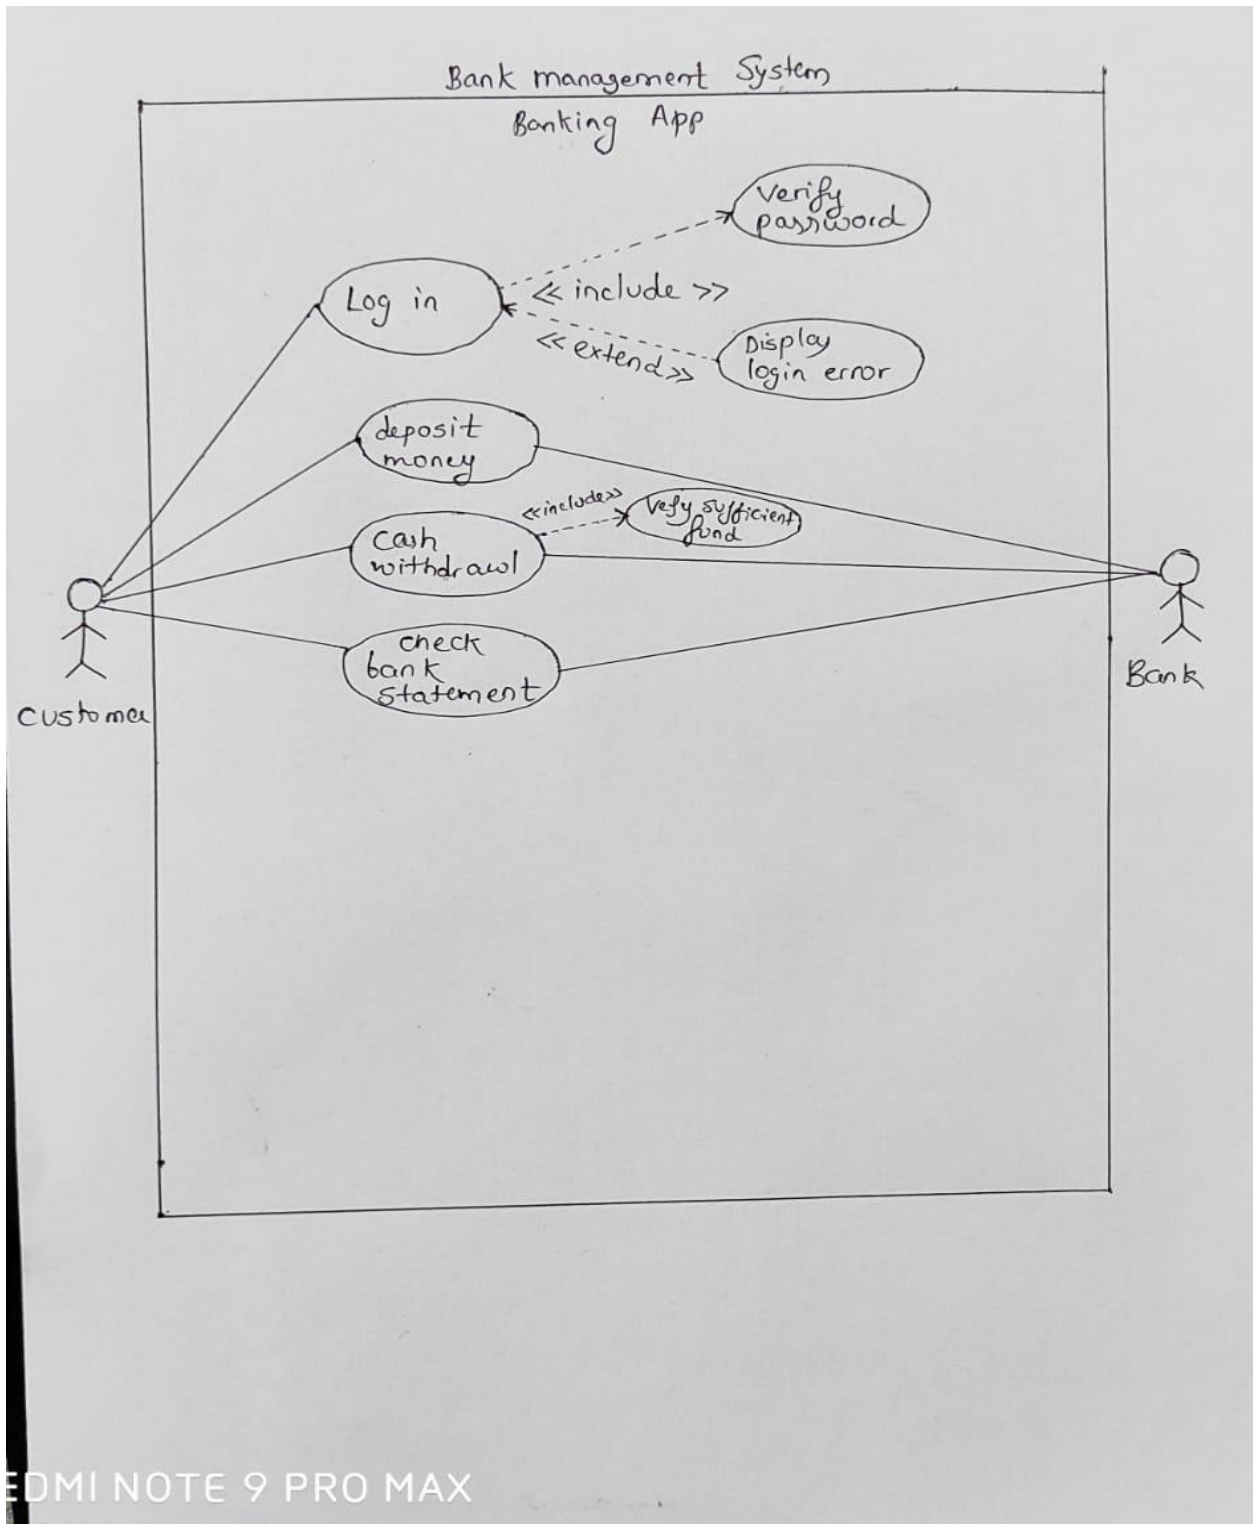 Bank management System
Banking App
Verify
password
Log in
<< include >>
<< extend >>
Display
login error
deposit
money
<<include>>
Vefy sufficient
fund
cash
withdrawl
check
bank
statement
Customer
Bank
EDMI NOTE 9 PRO MAX